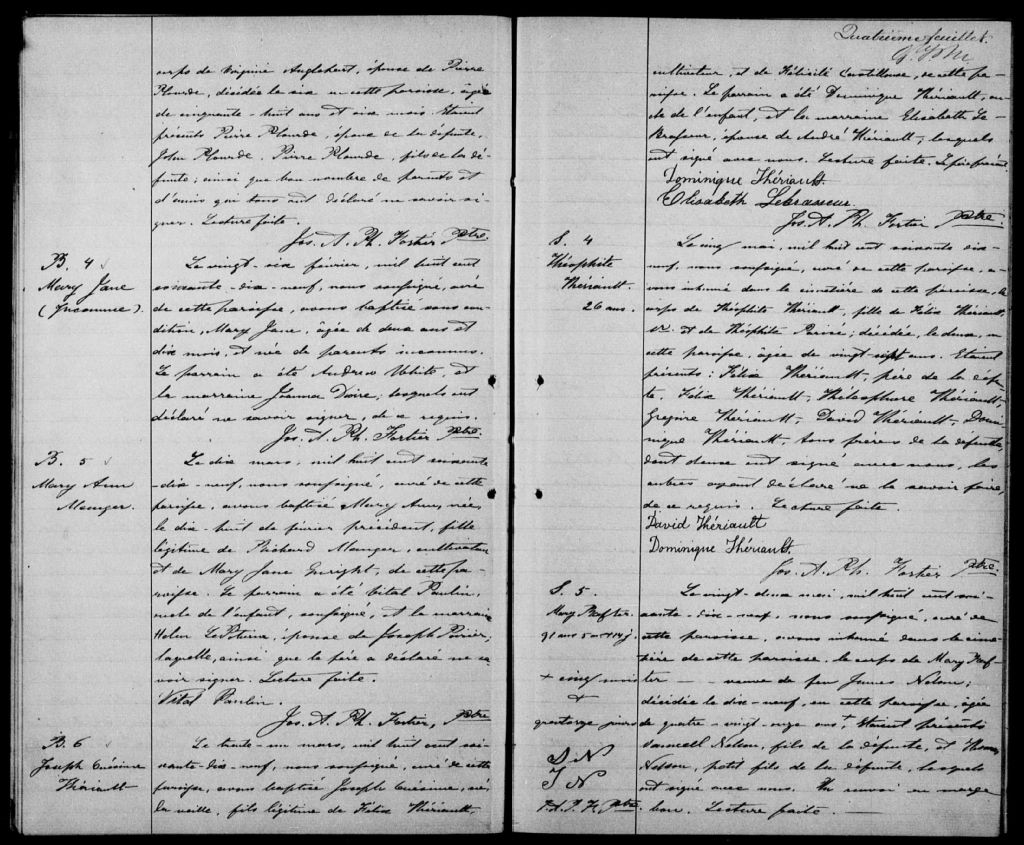 corps de Virginie Anglehart, épouse de Pierre
Plourde, décédée le six en cette paroisse, âgée
de cinquante-huit ans et six mois. Etaient
présents Pierre Plourde, époux de la défunte,
John Plourde, Pierre Plourde, fils de la dé-
funte; ainsi que bon nombre de parents et
d'amis qui tous ont déclaré ne savoir si-
gner. Lecture faite.
Jos. A. Ph. Fortier Ptre.
B. 4
Mary Jane
(Inconnue).
Le vingt-six février, mil huit cent
soixante-dix-neuf, nous soussigné, curé
de cette paroisse, avons baptisé sous con-
dition, Mary Jane, âgée de deux ans et
dix mois, et née de parents inconnus.
Le parrain a été Andrew White, et
la marraine Joanna, lesquels ont
déclaré ne savoir signer, de ce requis.
Jos. A. Ph. Fortier Ptre.
B. 5
Mary Ann
Mauger.
Le dix mars, mil huit cent soixante
-dix-neuf, nous soussigné, curé de cette
paroisse, avons baptisé Mary Ann, née
le dix-huit de février précédent, fille
légitime de Richard Mauger, cultivateur
et de Mary Jane Enright, de cette pa-
roisse. Le parrain a été Vital Paulin,
oncle de l'enfant, soussigné, et la marraine
Helen, épouse de Joseph Poirier,
laquelle, ainsi que le père a déclaré ne sa-
voir signer. Lecture faite.
Vital Paulin.
Jos. A. Ph. Fortier, Ptre
B. 6
Joseph Onésime
Thériault
Le trente-un mars, mil huit cent soi-
xante-dix-neuf, nous soussigné, curé de cette
paroisse, avons baptisé Joseph Onésime, né
la veille, fils légitime de Félix Thériault,
Quatrième feuillet.
cultivateur, et de Félicité, de cette pa-
roisse. Le parrain a été Dominique Thériault, on-
cle de l'enfant, et la marraine Elisabeth Le-
Brasseur, épouse de André Thériault, lesquels
ont signé avec nous. Lecture faite.
Dominique Thériault
Elisabeth Lebrasseur
Jos. A. Ph. Fortier Ptre
S. 4
Théophite
Thériault.
26 ans.
Le cinq mai, mil huit cent soixante dix-
neuf, nous soussigné, curé de cette paroisse, a-
vons inhumé dans le cimetière de cette paroisse, le
corps de Théophite Thériault, fille de Félix Thériault,
et de Théophite Parisé; décédée, le deux, en
cette paroisse, âgée de vingt-sept ans. Etaient
présents: Félix Thériault, père de la défun-
te, Félix Thériault, Thélesphore Thériault,
Grégoire Thériault, David Thériault, Domi-
nique Thériault, tous frères de la défunte,
dont deux ont signé avec nous, les
autres ayant déclaré ne le savoir faire,
de ce requis. Lecture faite.
David Thériault
Dominique Thériault.
Jos. A. Ph. Fortier Ptre.
S. 5.
Mary Baxter
91 ans 5 m & 14 j.
+ cinq mois
&
quatorze jours
S N
T N
J. A. P. F. Ptre
Le vingt-deux mai, mil huit cent soi-
xante-dix-neuf, nous soussigné, curé de
cette paroisse, avons inhumé dans le cime-
tière de cette paroisse, le corps de Mary Bax-
ter — veuve de feu James Nelson;
décédée le dix-neuf, en cette paroisse, âgée
de quatre-vingt-onze ans +. Etaient présents
Samuell Nelson, fils de la défunte, et Thomas
Nelson, petit fils de la défunte, lesquels
ont signé avec nous. Un renvoi en marge
bon. Lecture faite.